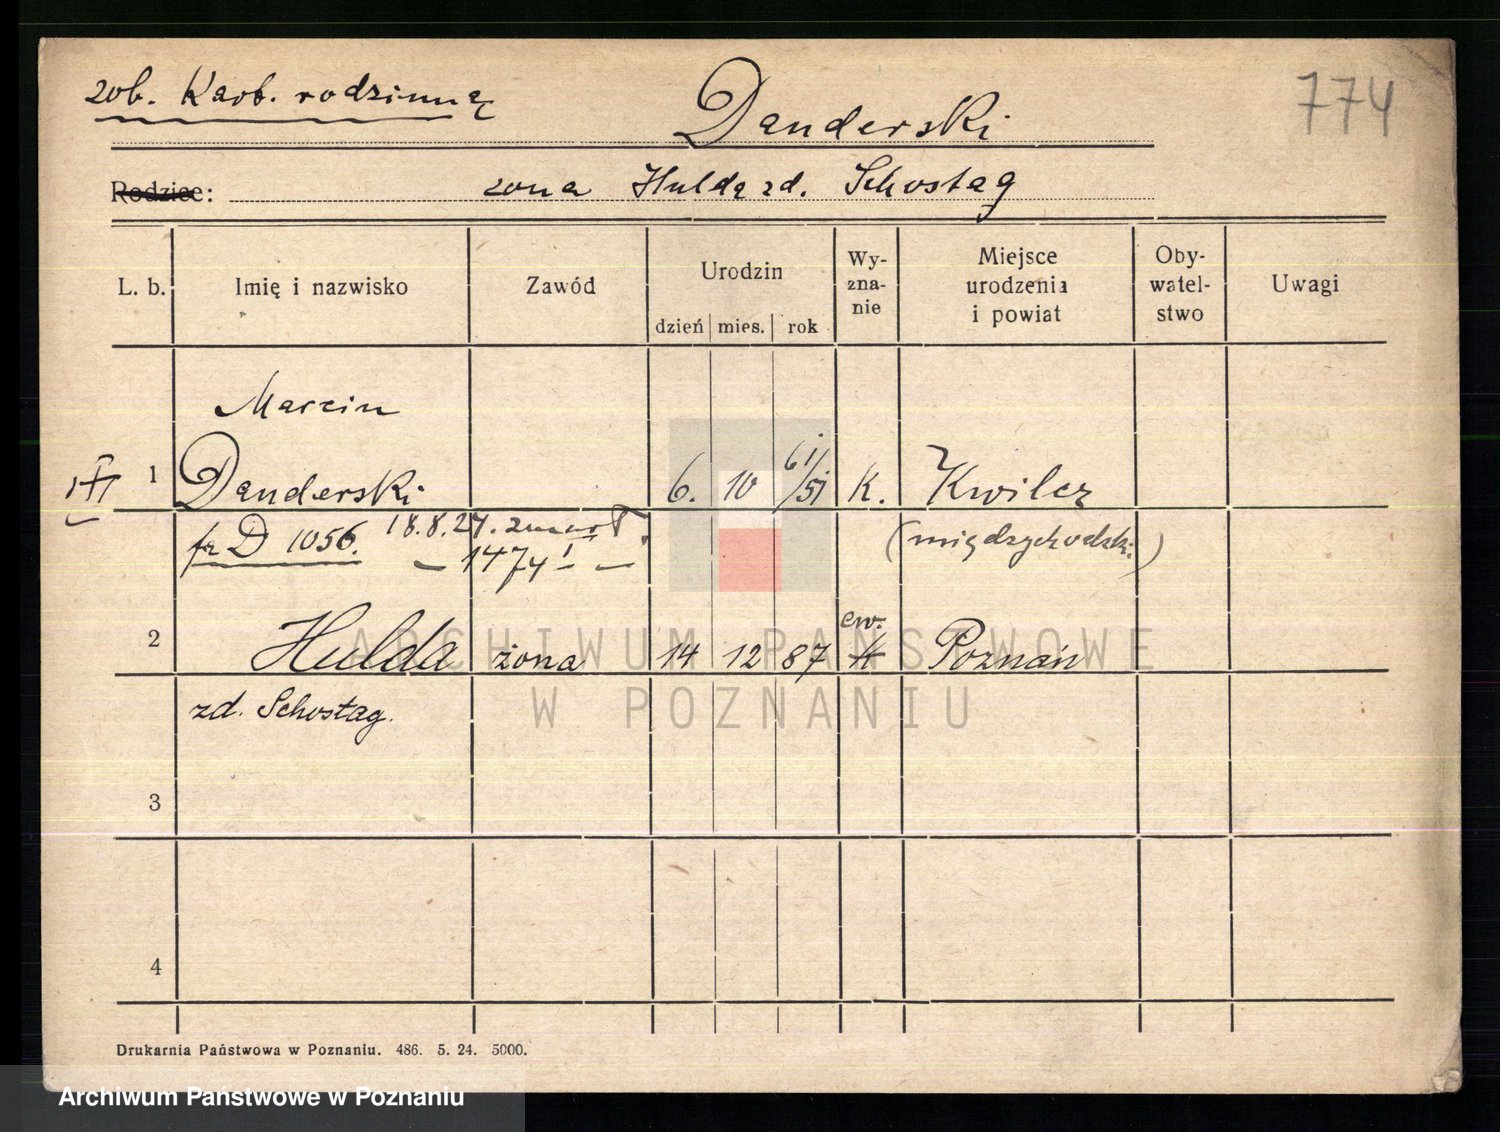 zob. Kart. rodzinną
Danderski
774
Rodzice:
żona Hulda zd. Schostag
L. b.
Imię i nazwisko
Zawód
Urodzin
dzień
mies.
rok
Wy-
zna-
nie
Miejsce
urodzenia
i powiat
Oby-
watel-
stwo
Uwagi
Marcin
1
Danderski
6.
10
61/51
k.
Kwilcz
D 1056.
18.8.27.
1474
(międzychodzki)
2
Hulda
żona
14
12
87
ew.
k
Poznań
zd. Schostag.
3
4
Drukarnia Państwowa w Poznaniu. 486. 5. 24. 5000.
ARCHIWUM PAŃSTWOWE
W POZNANIU
Archiwum Państwowe w Poznaniu